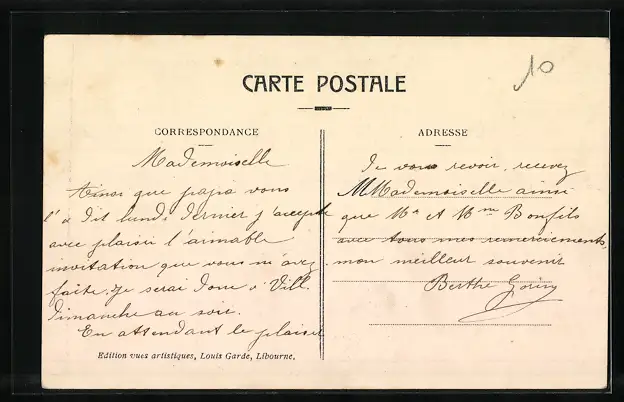 CARTE POSTALE
10
CORRESPONDANCE
Mademoiselle
Ainsi que papa vous
l'a dit lundi dernier j'accepte
avec plaisir l'aimable
invitation que vous m'avez
faite. Je serai donc à Vill.
Dimanche au soir.
En attendant le plaisir
Edition vues artistiques, Louis Garde, Libourne.
ADRESSE
de vous revoir, recevez
Mademoiselle ainsi
que Mr et Mme Bonfils
avec tous mes remerciements,
mon meilleur souvenir
Berthe